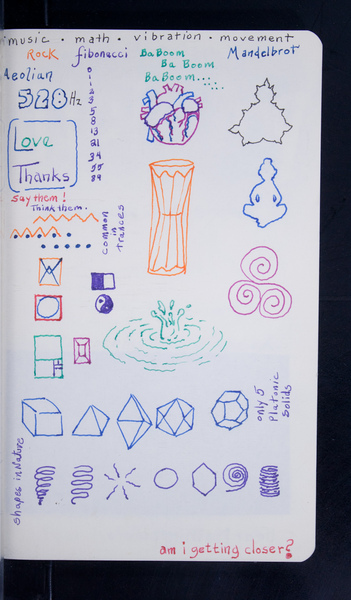 music • math • vibration • movement
Rock
fibonacci
BaBoom
Ba Boom
BaBoom...
Mandelbrot
Aeolian
528Hz
0
1
2
3
5
8
13
21
34
55
89
Love
Thanks
say them!
Think them.
common
in
trances
only 5
Platonic
Solids
shapes in Nature
am i getting closer?